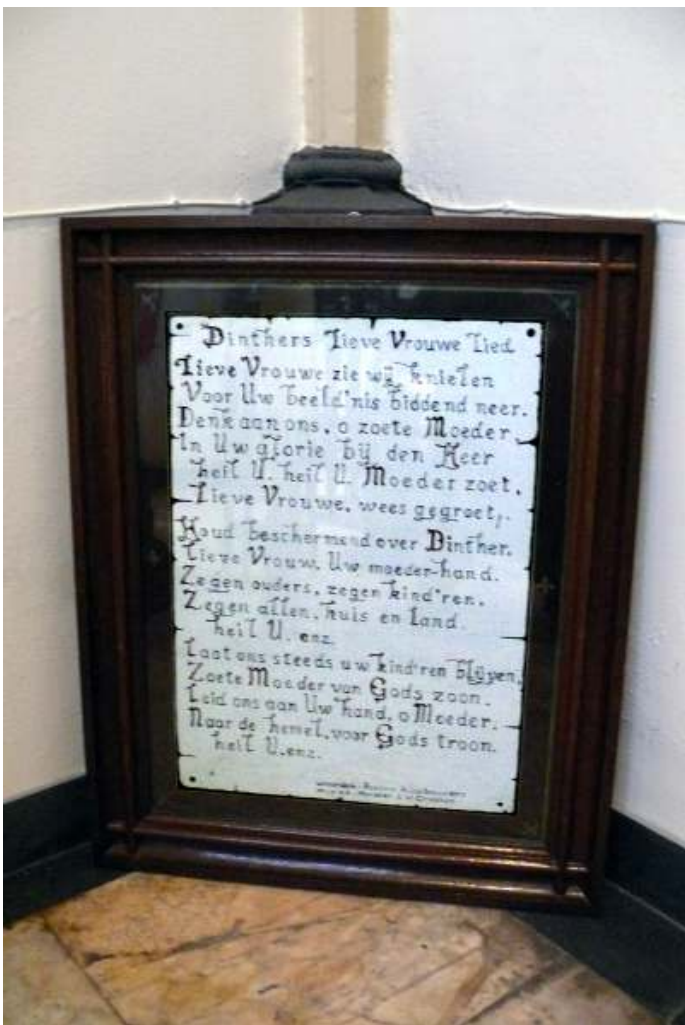 Dinthers Lieve Vrouwe Lied
Lieve Vrouwe zie wij knielen
Voor Uw beeld'nis biddend neer.
Denk aan ons, o zoete Moeder,
In Uw glorie bij den Heer
heil U, heil U, Moeder zoet,
Lieve Vrouwe, wees gegroet,.
Houd beschermend over Dinther,
Lieve Vrouw, Uw moeder-hand.
Zegen ouders, zegen kind'ren,
Zegen allen, huis en land.
heil U, enz.
Laat ons steeds uw kind'ren blijven,
Zoete Moeder van Gods zoon.
Leid ons aan Uw hand, o Moeder,
Naar de hemel, voor Gods troon.
heil U, enz.